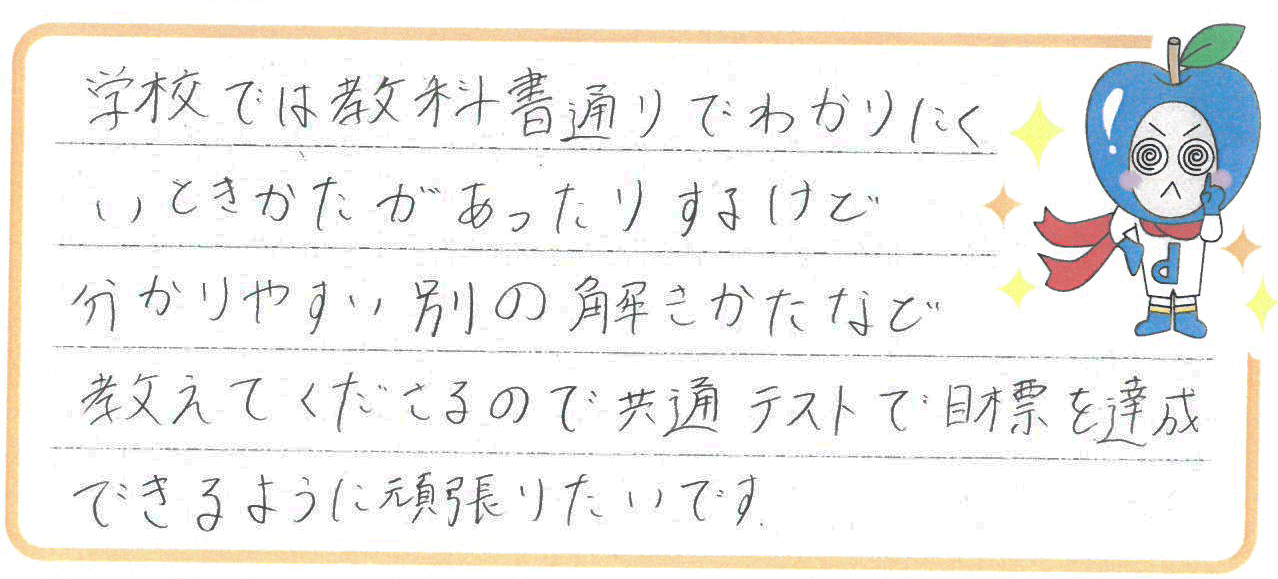 学校では教科書通りでわかりにく
いときかたがあったりするけど
分かりやすい別の解きかたなど
教えてくださるので共通テストで目標を達成
できるように頑張りたいです.
d